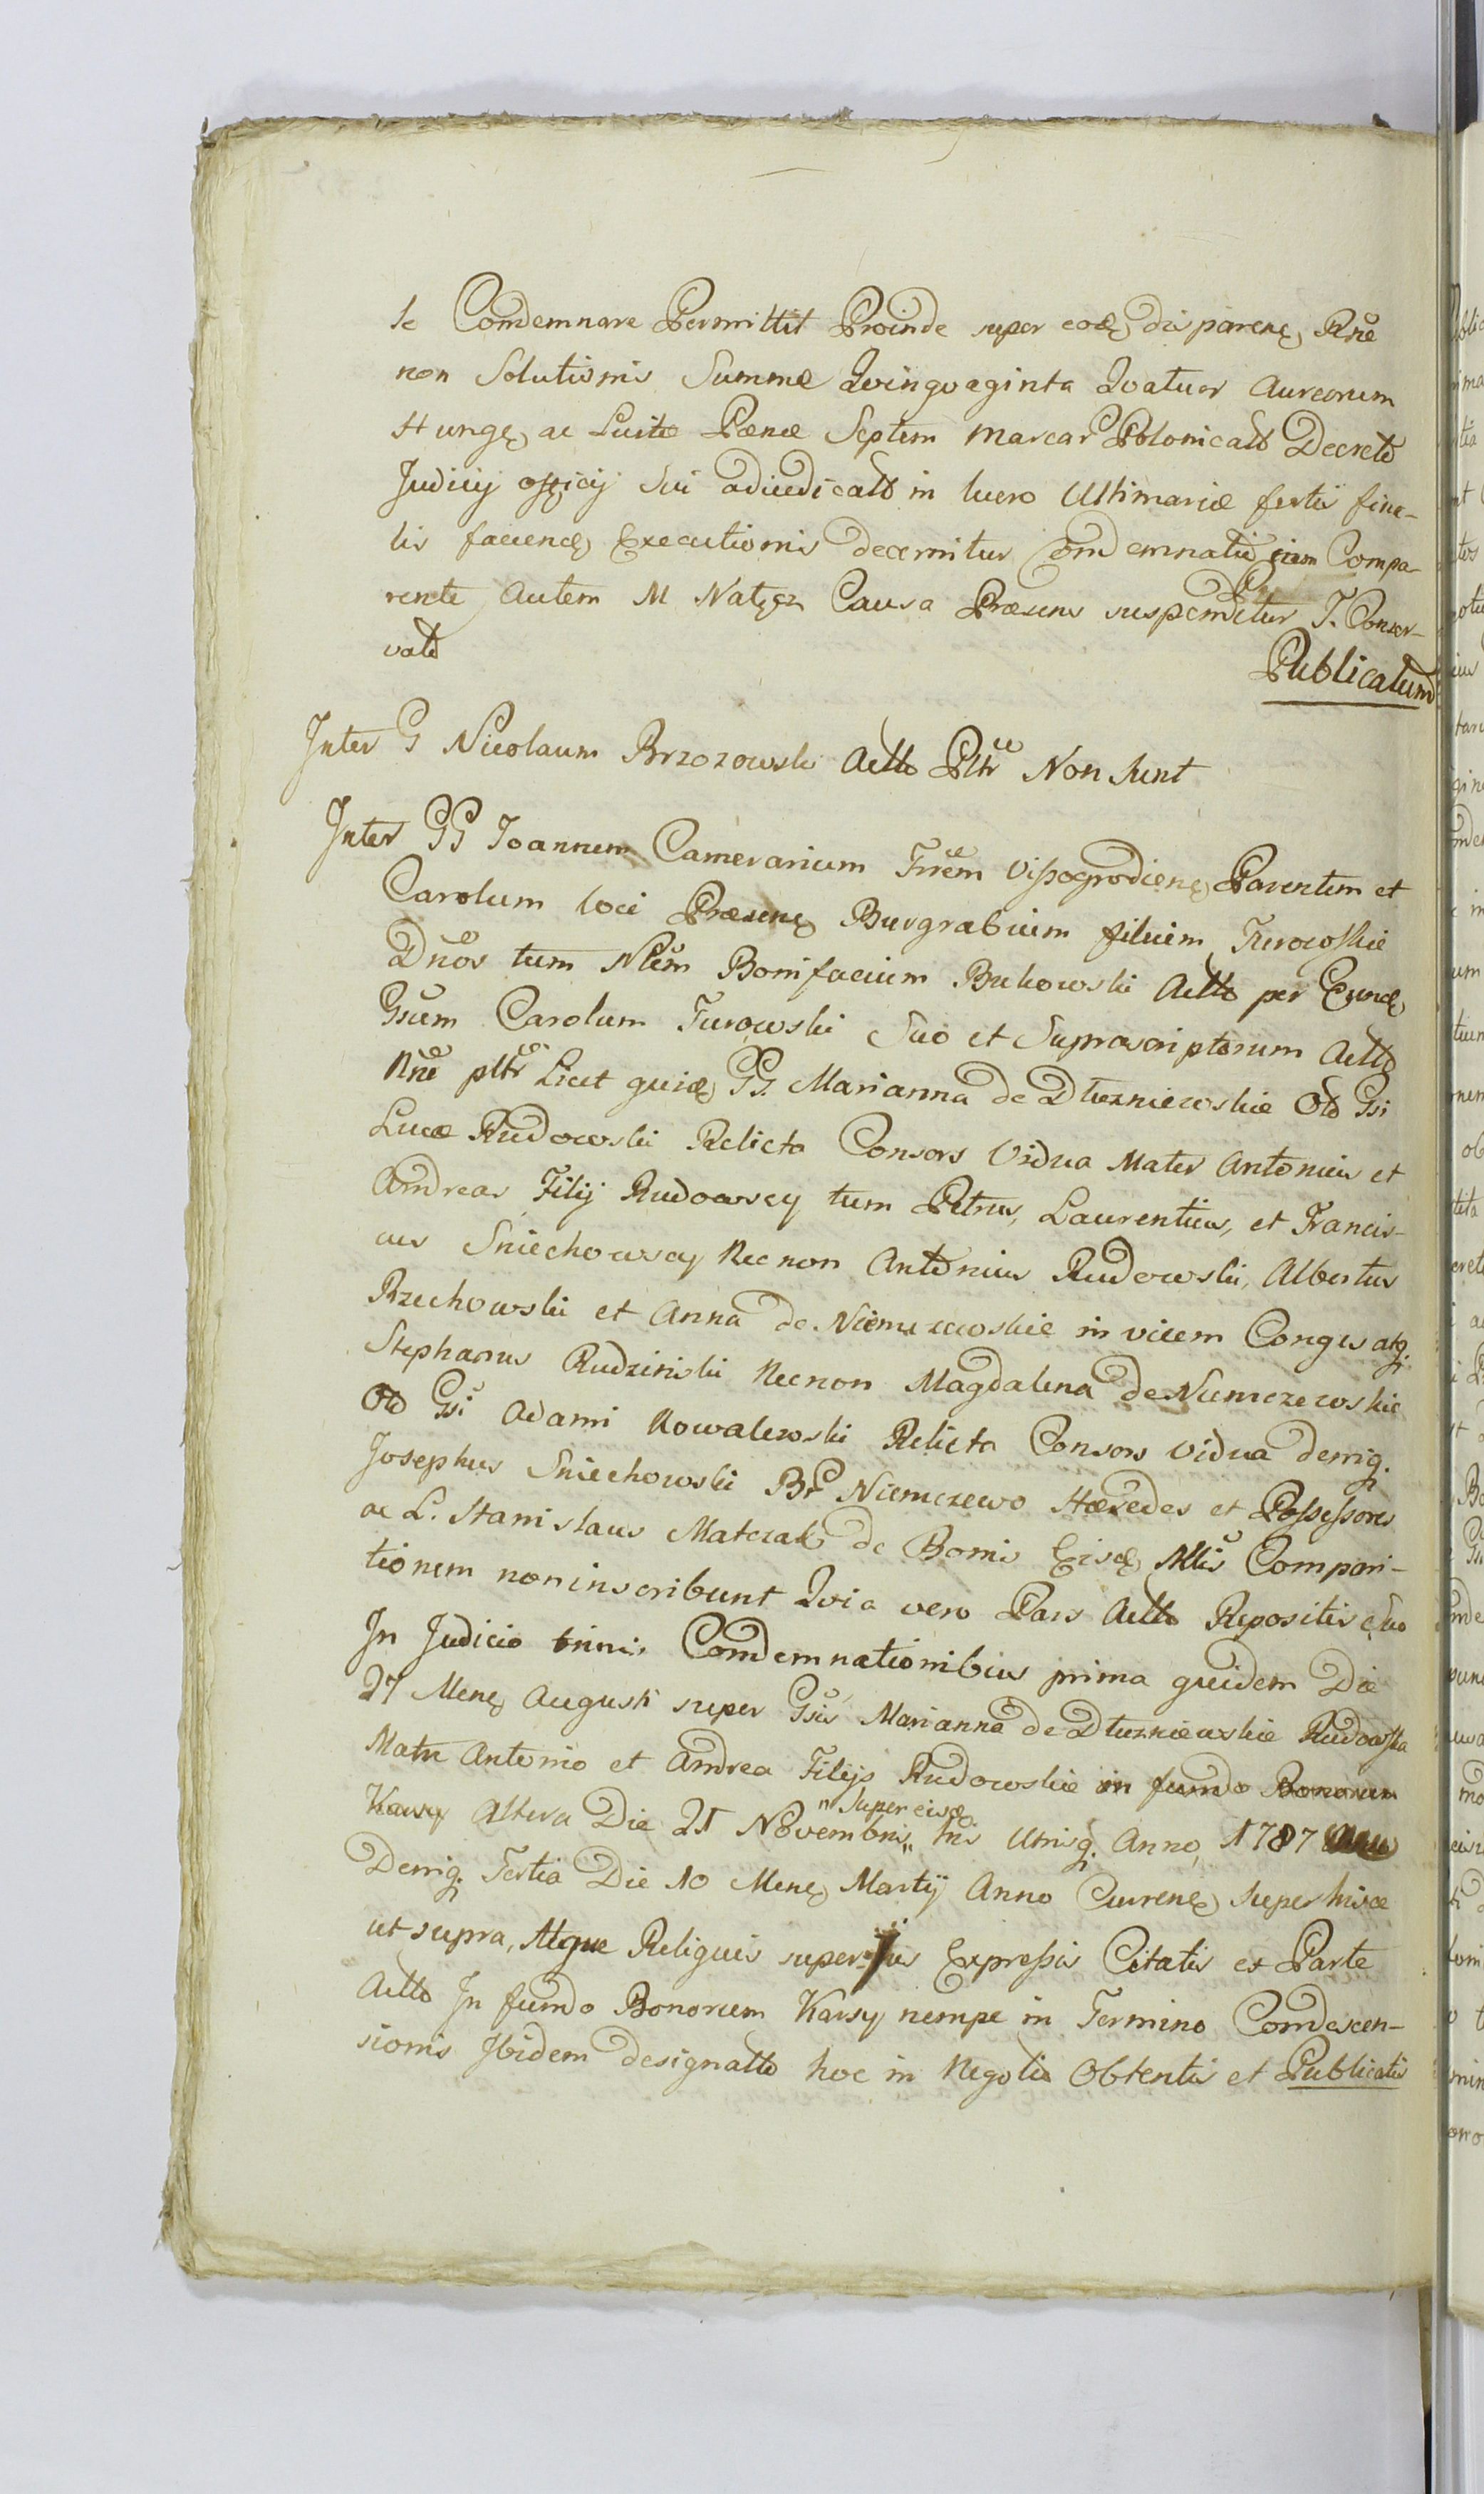 se Condemnare Permittit Proinde super eodē die parenē Rñe
non Solutionis Summæ Qvingvaginta Qvatuor Aureorum
Hungē ac Luitæ Pænæ Septem Marcar Polonicalō Decreto
Judicij officij Sui adiudicatō in lucro Ultimariæ fertis fina-
lis faciendē Executionis decernitur Condemnatiō Compa-
rente Autem M Natęcz Causa Præsens suspenditur T. Conser-
vatō
Publicatum
Inter G Nicolaum Brzozowski Actō Pltr Non sunt
Inter GG Joannem Camerarium Trrem Vissogrodienē Parentem et
Carolum loci Præsenē Burgrabium filium Turowskie
Dnos tum Nlem Bonifacium Bukowski Actō per Eundē
Gsum Carolum Turowski Suo et Suprascriptorum Actō
Nne pltr Licet quidē GG. Marianna de Dłuzniewskie Olō Gsi
Lucæ Rudowski Relicta Consors Vidua Mater Antonius et
Andreas Filij Rudowscy tum Petrus, Laurentius, et Francis-
cus Sniechowscy Necnon Antonius Rudowski, Albertus
Rzechowski et Anna de Niemczewskie invicem Conges atq.
Stephanus Rudzinski Necnon Magdalena de Niemczewskie
Olō Gsi Adami Kowalewski Relicta Consors Vidua deniq.
Josephus Sniechowski Br Niemczewo Hæredes et Possessores
ac L. Stanislaus Matczak de Bonis Eisdē Mlis Compari-
tionem non inscribunt Qvia vero Pars Actō Repositis
In Judicio trinis Condemnationibus prima quidem Die
27 Menē Augusti super Gsis Marianna de Dłuzniewskie Rudowska
Matre Antonio et Andrea Filijs Rudowskie in fundo Bonorum
Karsy Altera Die 21 Novembris "super eisdē" Utrisq. Anno 1787
Deniq. Tertia Die 10 Menē Martij Anno Currenē super hisce
ut supra, Atque Reliquis superius Expressis Citatis ex Parte
Actō In fundo Bonorum Karsy nempe in Termino Condescen-
sionis Ibidem designatō hoc in Negotiō Obtentis et Publicatis